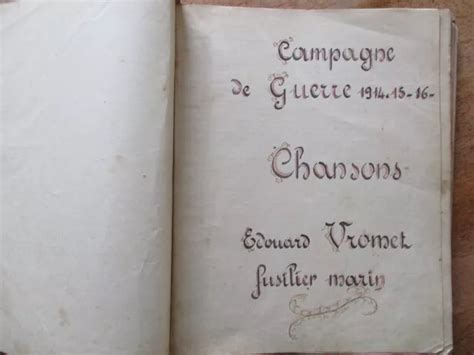 Campagne
de Guerre 1914.15-16-
Chansons
Edouard Vromet
fusilier marin